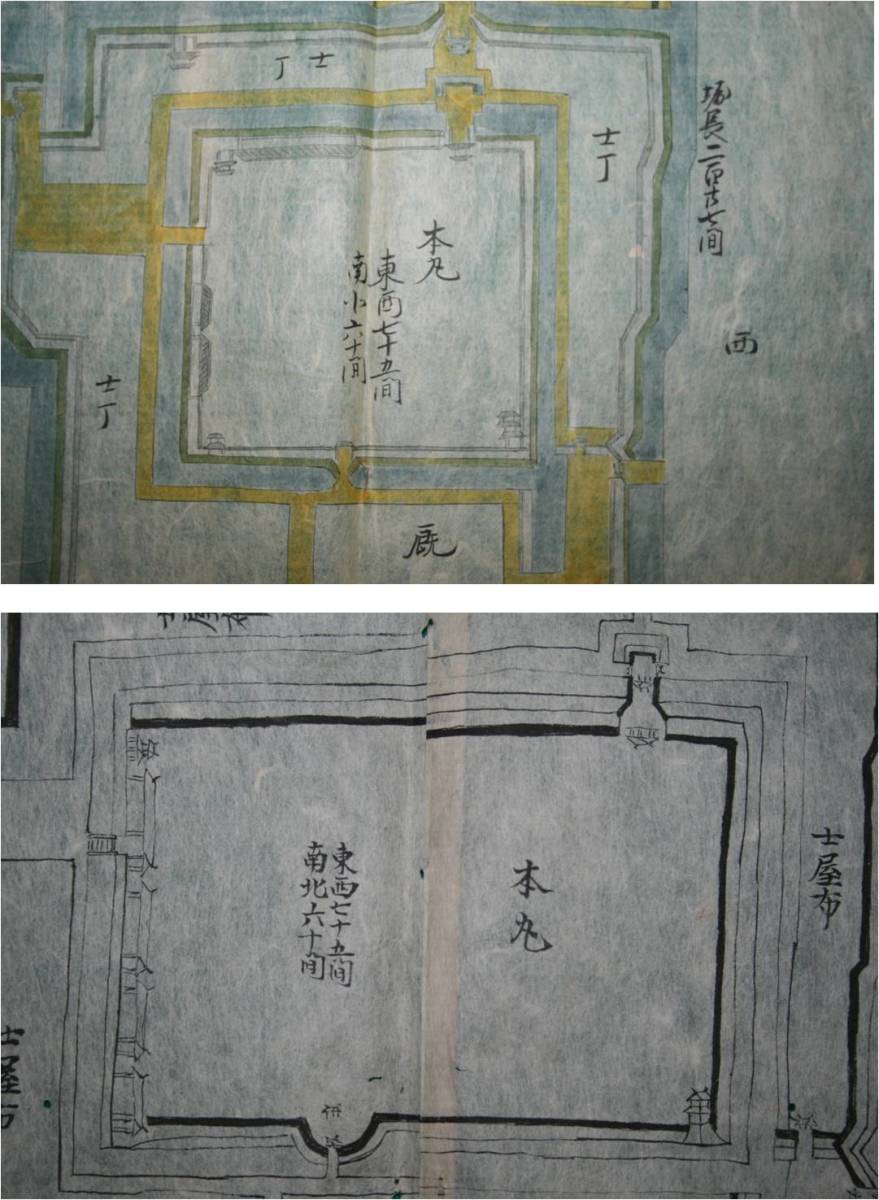 士丁
士丁
堀長二百廿七间
本丸
東西七十五间
南北六十间
西
士丁
厩
本丸
東西七十五间
南北六十间
士屋布
士屋布